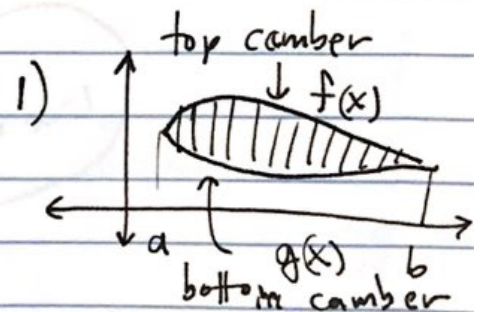 top camber
1)
f(x)
a
g(x)
b
bottom camber